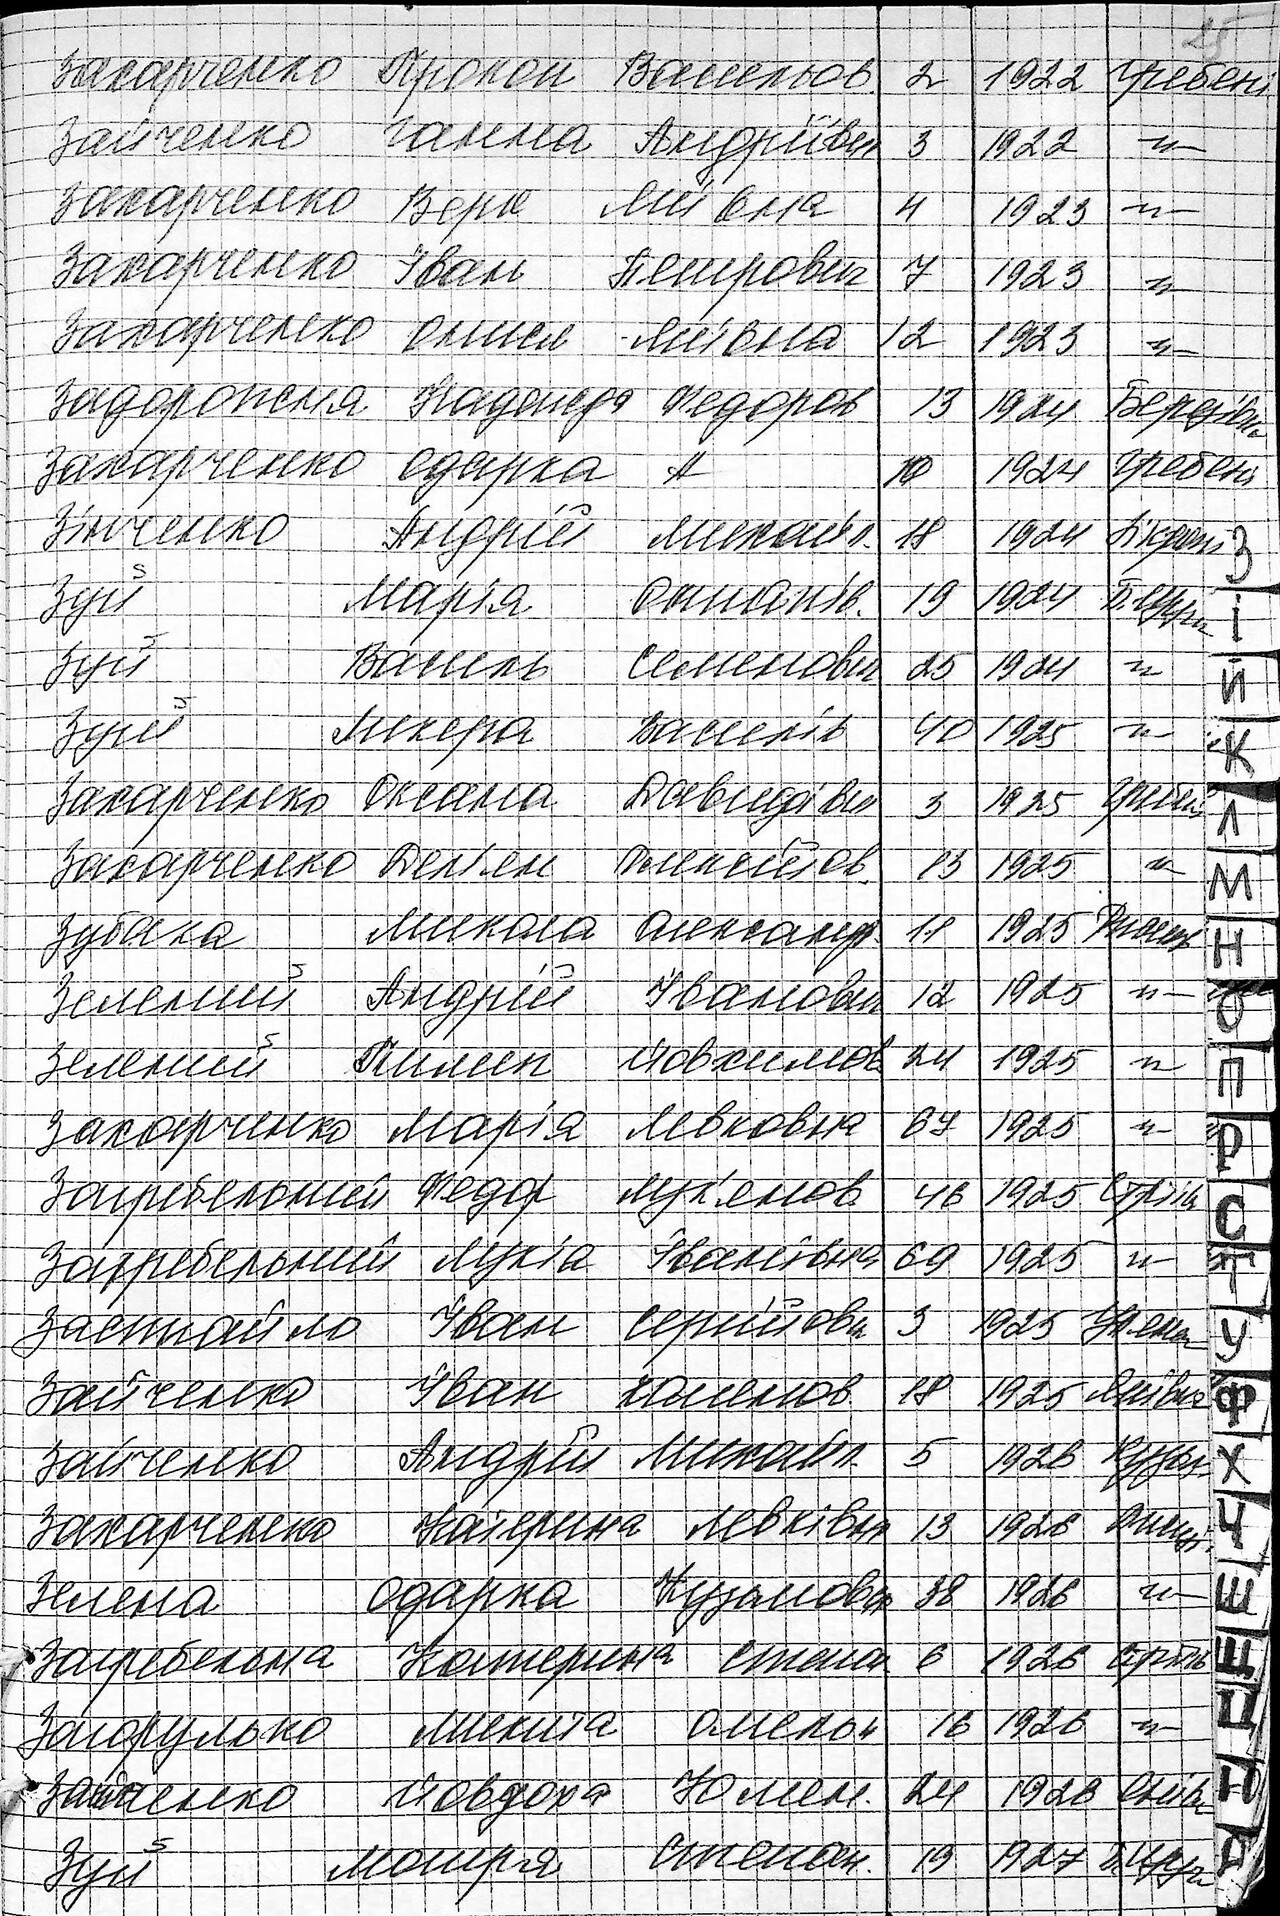 25
Захарченко Прокоп Васильов. 2 1922 Гребені
Зайченко Ганна Андріївн 3 1922 -"-
Захарченко Вера Миівна 4 1923 -"-
Захарченко Іван Петрович 7 1923 -"-
Захарченко Миівна 12 1923 -"-
Задорожня Надежда Федоров 13 1924 Березівк
Захарченко Одарка А 10 1924 Гребені
Зінченко Андрій Михайл. 18 1924
Зуй Марія 19 1924
Зуй Василь Семенович 25 1924 -"-
Зуй Ликера Василів 40 1925 -"-
Захарченко Оксана Давидівн 3 1925
Захарченко Дем'ян Олексійов. 13 1925 -"-
Зубака Микола Олександр. 11 1925
Зелений Андрій Іванович 12 1925 -"-
Зелений Пилип Йовхимов 24 1925 -"-
Захарченко Марія Левковна 67 1925 -"-
Загребельний Федор Лук'янов 46 1925
Загребельний Лукія Іванівна 69 1925 -"-
Застпайло Іван Сергійови 3 1925
Зайченко Іван 18 1925
Зайченко Андрій Михайл. 5 1926
Захарченко Катерина Левківн 13 1926
Зелена Одарка Кузьмовн 38 1926 -"-
Загребельна Катерина Степа. 6 1926
Загрулько Микита Омельн 16 1926 -"-
Зайченко Йовдоха Юмен. 24 1926
Зуй Мотря Степан. 19 1927
З
І
Й
К
Л
М
Н
О
П
Р
С
Т
У
Ф
Х
Ч
Ш
Щ
Ц
Ю
Я